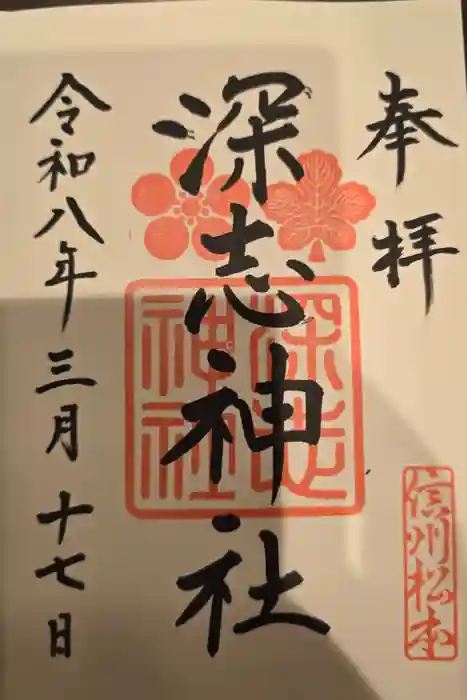 奉拝
深志神社
深志神社
信州松本
令和八年三月十七日